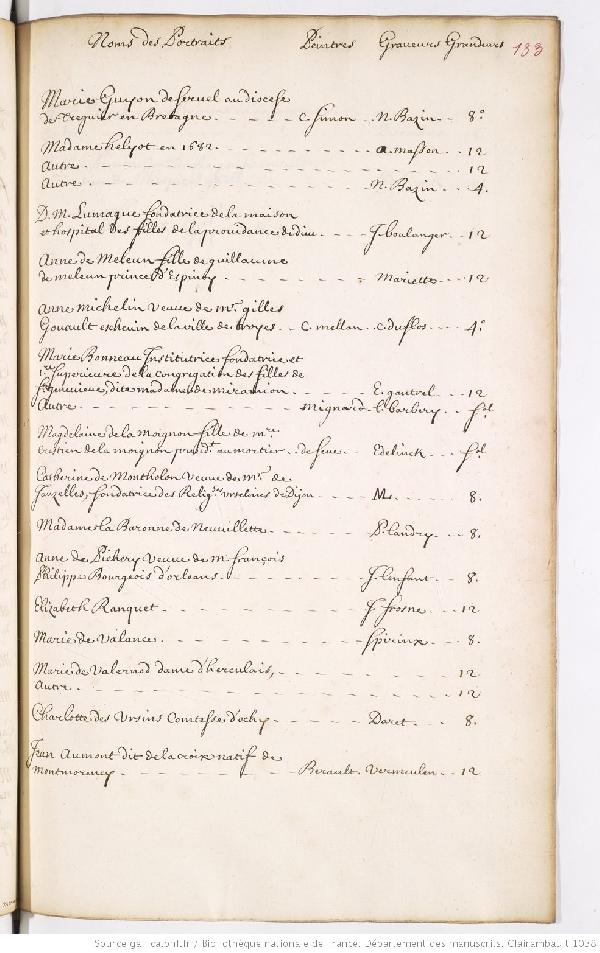 Noms des Portraits Peintres Graveurs Grandeurs 133
Marie Guyon de servel au diocese
de Treguier en Bretagne. C. Simon N. Bazin 8.°
Madame helyot en 1682. a. masson 12
Autre 12
Autre N. Bazin 4.
D. M. Lumague fondatrice de la maison
et hospital des filles de la prouidance de dieu J. boulanger 12
Anne de Meleun fille de guillaume
de meleun prince d'Espinoy Mariette 12
Anne Michelin Veuue de mr. gilles
Gouault escheuin de la ville de troyes C. mellan C. duflos 4.°
Marie Bonneau Institutrice fondatrice et
1.re Superieure de la congregation des filles de
ste geneuieue, dite madame de miramion E. gantrel 12
Autre mignard barbery fol.
Magdelaine de la moignon fille de mre.
Crestien de la moignon presid.t au mortier de seue Edelinck fol.
Catherine de Montholon Veuue de mr. de
Sanzelles, fondatrice des Relig.ses vrselines de Dijon M. 8.
Madame la Baronne de Neuuillette P. landry 8.
Anne de Pichery Veuue de mr. françois
Philippe Bourgeois d'orleans J. lenfant 8.
Elizabeth Ranquet J. frosne 12
Marie de Valance Spirinx 8.
Marie de Valernod dame d'herculais, 12
Autre 12
Charlotte des Vrsins Comtesse d'ochy Daret 8.
Jean Aumont dit de la croix natif de
montmorency Berault Vermeulen 12
Source gallica.bnf.fr / Bibliothèque nationale de France. Département des manuscrits. Clairambault 1038